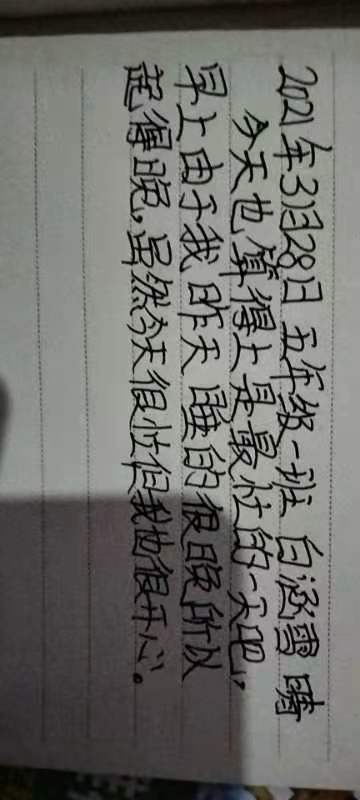 2021年3月28日 五年级一班 白涵雪晴
今天也算得上是最忙的一天吧,
早上由于我昨天睡的很晚所以
起得晚,虽然今天很忙但我也很开心。